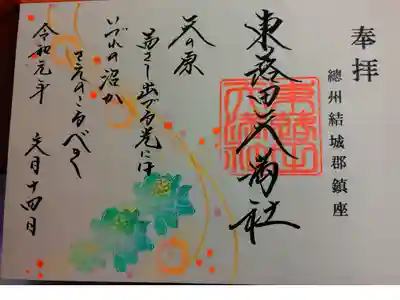 奉拝
總州結城郡鎮座
東蕗田天満社
天の原
茜さし出づる光には
いづれの沼か
さえのこるべき
令和元年 文月十四日